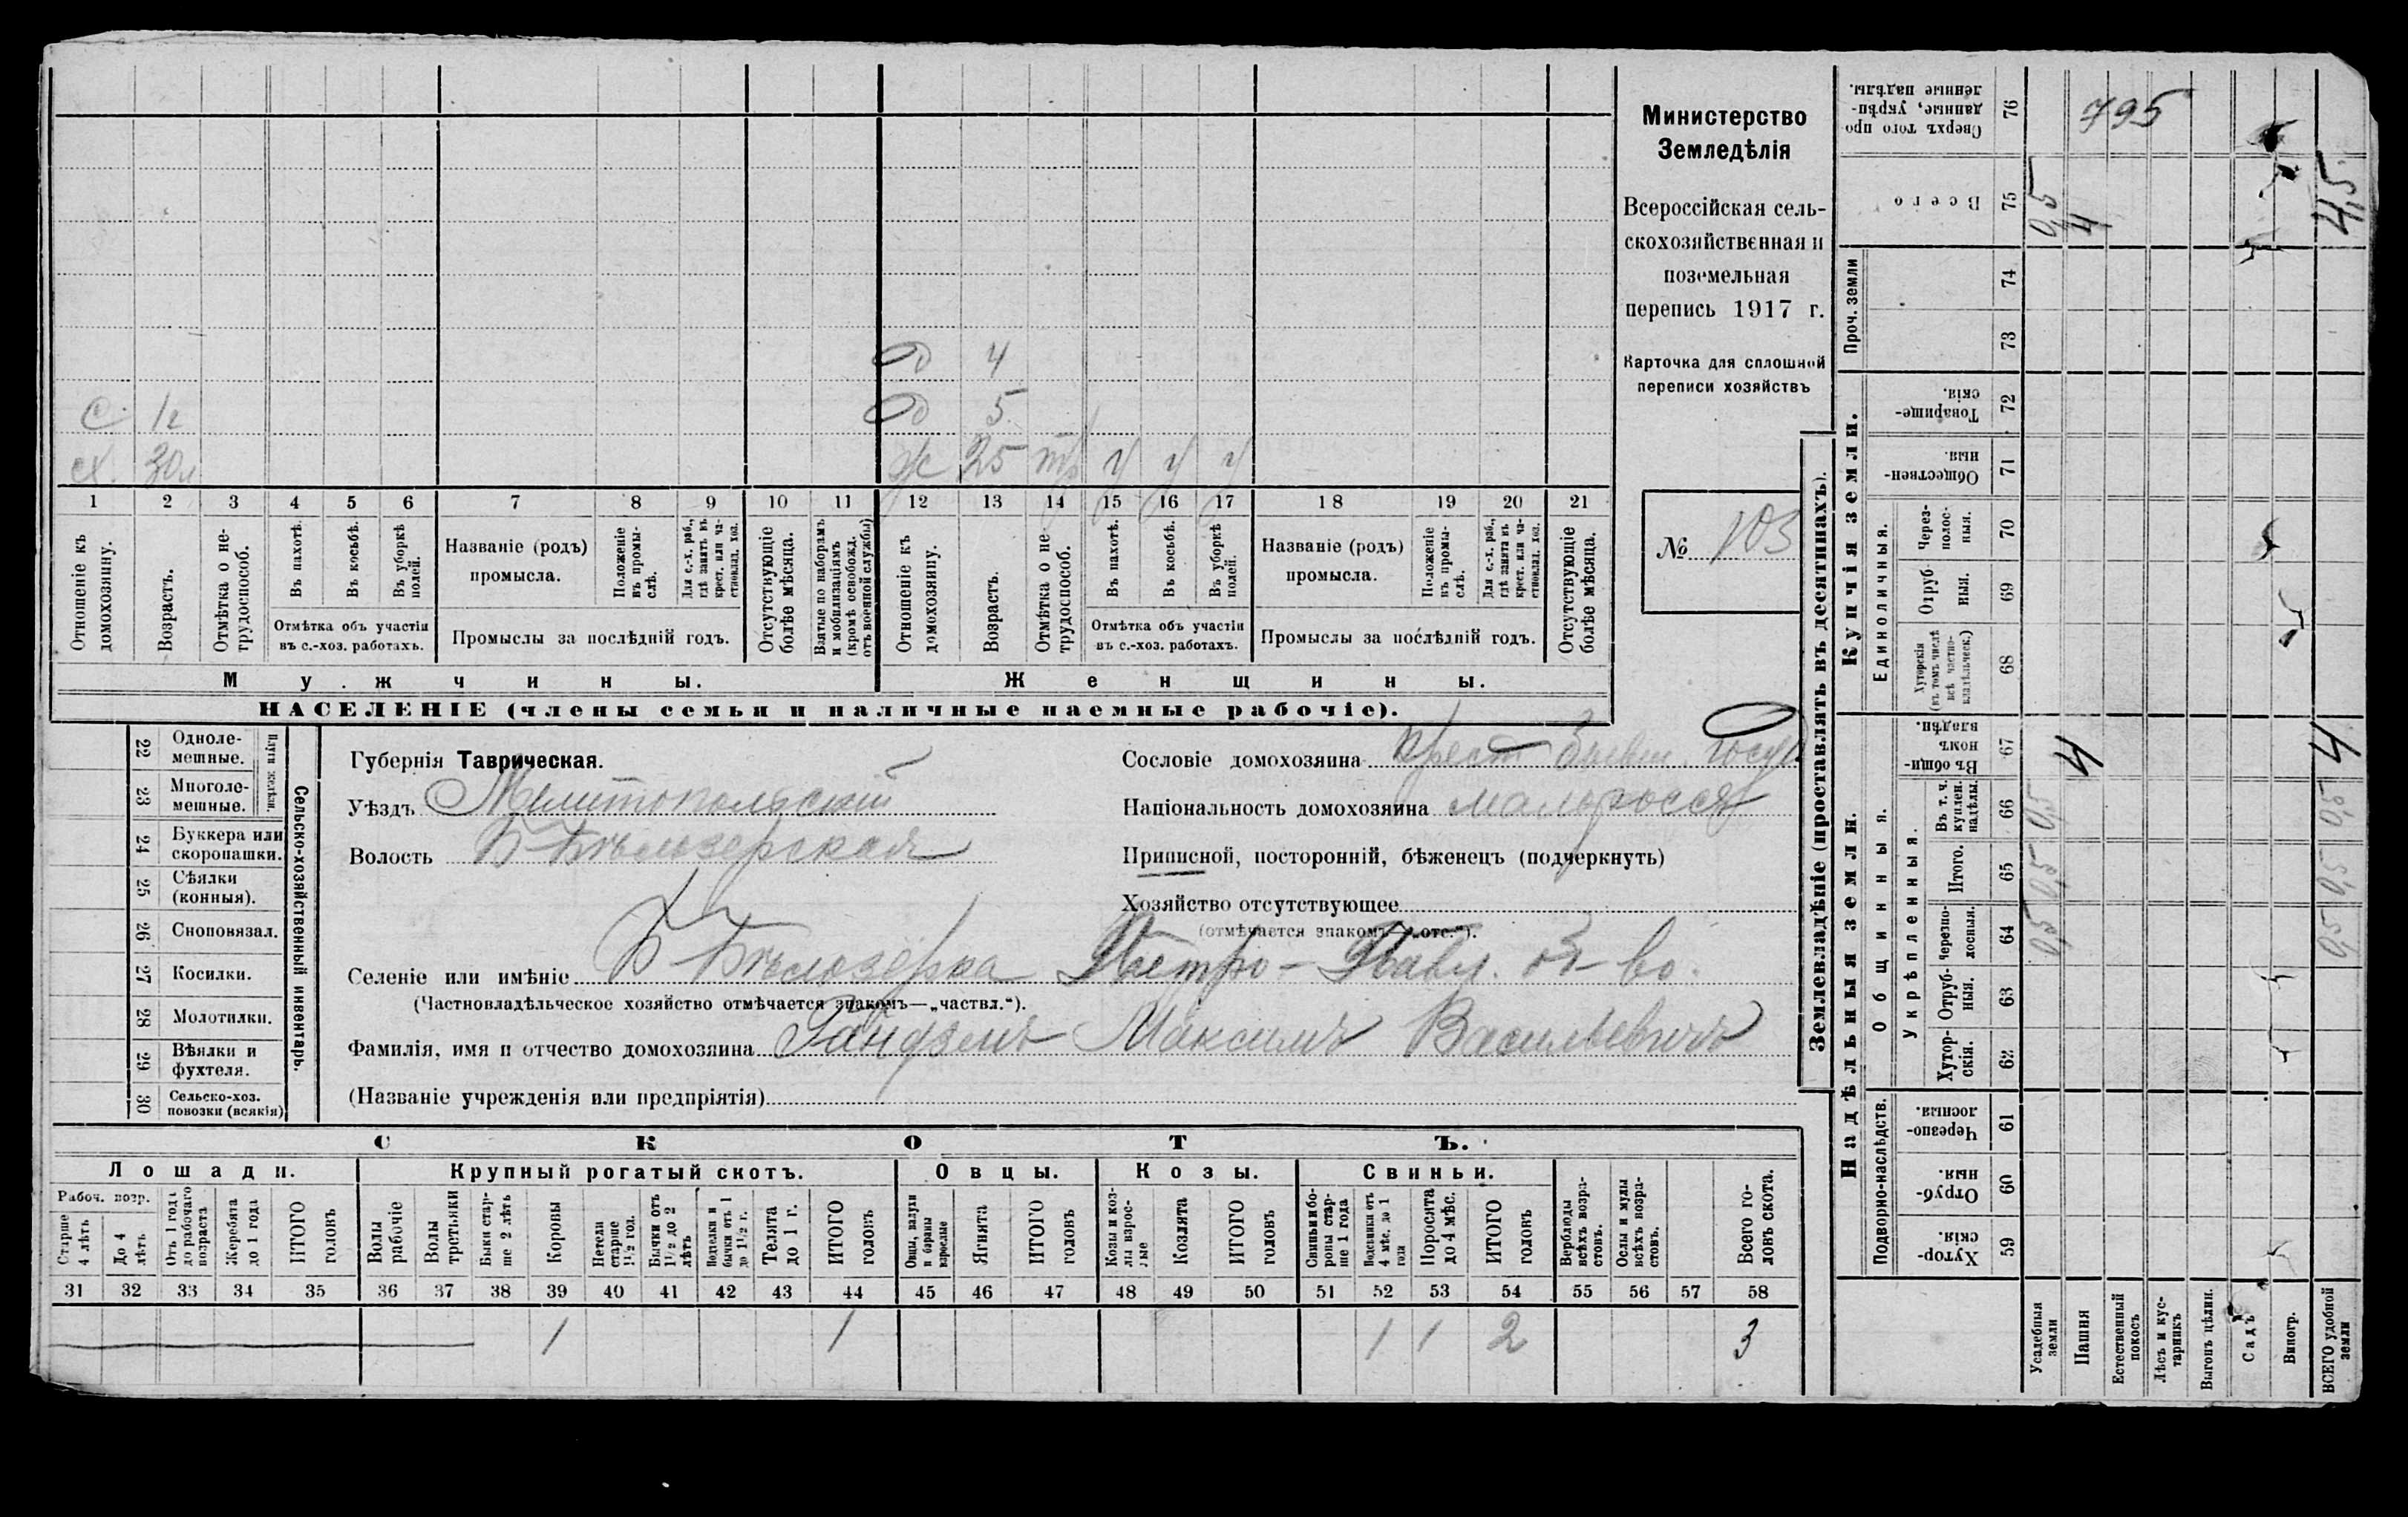 Министерство
Земледѣлія
Всероссійская сель-
скохозяйственная и
поземельная
перепись 1917 г.
Карточка для сплошной
переписи хозяйствъ
№ 103
д 4
с. 1г д 5
х. 30л ж 25 тр у у у
1 2 3 4 5 6 7 8 9 10 11 12 13 14 15 16 17 18 19 20 21
Отношеніе къ домохозяину.
Возрастъ.
Отмѣтка о не-трудоспособ.
Въ пахотѣ.
Въ косьбѣ.
Въ уборкѣ полей.
Отмѣтка объ участіи
въ с.-хоз. работахъ.
Названіе (родъ)
промысла.
Положеніе въ промы-слѣ.
Для с.-х. раб., гдѣ занятъ въ крест. или ча-стновлад. хоз.
Промыслы за послѣдній годъ.
Отсутствующіе болѣе мѣсяца.
Взятые по наборамъ и мобилизаціямъ (кромѣ освобожд. отъ военной службы)
Отношеніе къ домохозяину.
Возрастъ.
Отмѣтка о не-трудоспособ.
Въ пахотѣ.
Въ косьбѣ.
Въ уборкѣ полей.
Отмѣтка объ участіи
въ с.-хоз. работахъ.
Названіе (родъ)
промысла.
Положеніе въ промы-слѣ.
Для с.-х. раб., гдѣ занята въ крест. или ча-стновлад. хоз.
Промыслы за послѣдній годъ.
Отсутствующіе болѣе мѣсяца.
Мужчины.
Женщины.
НАСЕЛЕНІЕ (члены семьи и наличные наемные рабочіе).
Сельско-хозяйственный инвентарь.
Плуги желѣзн.
22 Одноле-мешные.
23 Многоле-мешные.
24 Буккера или скоропашки.
25 Сѣялки (конныя).
26 Сноповязал.
27 Косилки.
28 Молотилки.
29 Вѣялки и фухтеля.
30 Сельско-хоз. повозки (всякія)
Губернія Таврическая.
Уѣздъ Мелитопольскій
Волость Б Бѣлозерская
Селеніе или имѣніе Б Бѣлозерка Петро-Павл. об-во.
(Частновладѣльческое хозяйство отмѣчается знакомъ—„частвл.“).
Фамилія, имя и отчество домохозяина Максимъ Васильевичъ
(Названіе учрежденія или предпріятія)
Сословіе домохозяина Крест бывш. госуд
Національность домохозяина малоросся
Приписной, посторонній, бѣженецъ (подчеркнуть)
Хозяйство отсутствующее
(отмѣчается знакомъ—„отс.“).
СКОТЪ.
Лошади. Крупный рогатый скотъ. Овцы. Козы. Свиньи.
Рабоч. возр.
Старше 4 лѣтъ
До 4 лѣтъ
Отъ 1 года до рабочаго возраста
Жеребята до 1 года
ИТОГО головъ
Волы рабочіе
Волы третьяки
Быки стар-ше 2 лѣтъ
Коровы
Нетели старше 1½ год.
Бычки отъ 1½ до 2 лѣтъ
Подтелки и бычки отъ 1 до 1½ г.
Телята до 1 г.
ИТОГО головъ
Овцы, валухи и бараны взрослые
Ягнята
ИТОГО головъ
Козы и коз-лы взрос-лые
Козлята
ИТОГО головъ
Свиньи и бо-ровы стар-ше 1 года
Подсвинки отъ 4 мѣс. до 1 года
Поросята до 4 мѣс.
ИТОГО головъ
Верблюды всѣхъ возра-стовъ.
Ослы и мулы всѣхъ возра-стовъ.
Всего го-ловъ скота.
31 32 33 34 35 36 37 38 39 40 41 42 43 44 45 46 47 48 49 50 51 52 53 54 55 56 57 58
1 1 1 1 2 3
Землевладѣніе (проставлять въ десятинахъ).
Надѣльныя земли.
Подворно-наслѣдств.
Хутор-скія. 59
Отруб-ныя. 60
Черезпо-лосныя. 61
Общинныя.
Укрѣпленныя.
Хутор-скія. 62
Отруб-ныя. 63
Черезпо-лосныя. 64 0,5 0,5
Итого. 65 0,5 0,5
Въ т. ч. куплен. надѣлы. 66 0,5 0,5
Въ общи-номъ владѣн. 67 4 4
Купчія земли.
Единоличныя.
Хуторскія (въ томъ числѣ всѣ частно-владѣльческ.) 68
Отруб-ныя. 69
Через-полос-ныя. 70
Обществен-ныя. 71
Товарище-скія. 72
Проч. земли
73
74
Всего 75 0,5 4 4,5
Сверхъ того про-данные, укрѣп-ленные надѣлы. 76 795
Усадебныя земли
Пашня
Естественный покосъ
Лѣсъ и кус-тарникъ
Выгонъ цѣлин.
Садъ
Виногр.
ВСЕГО удобной земли